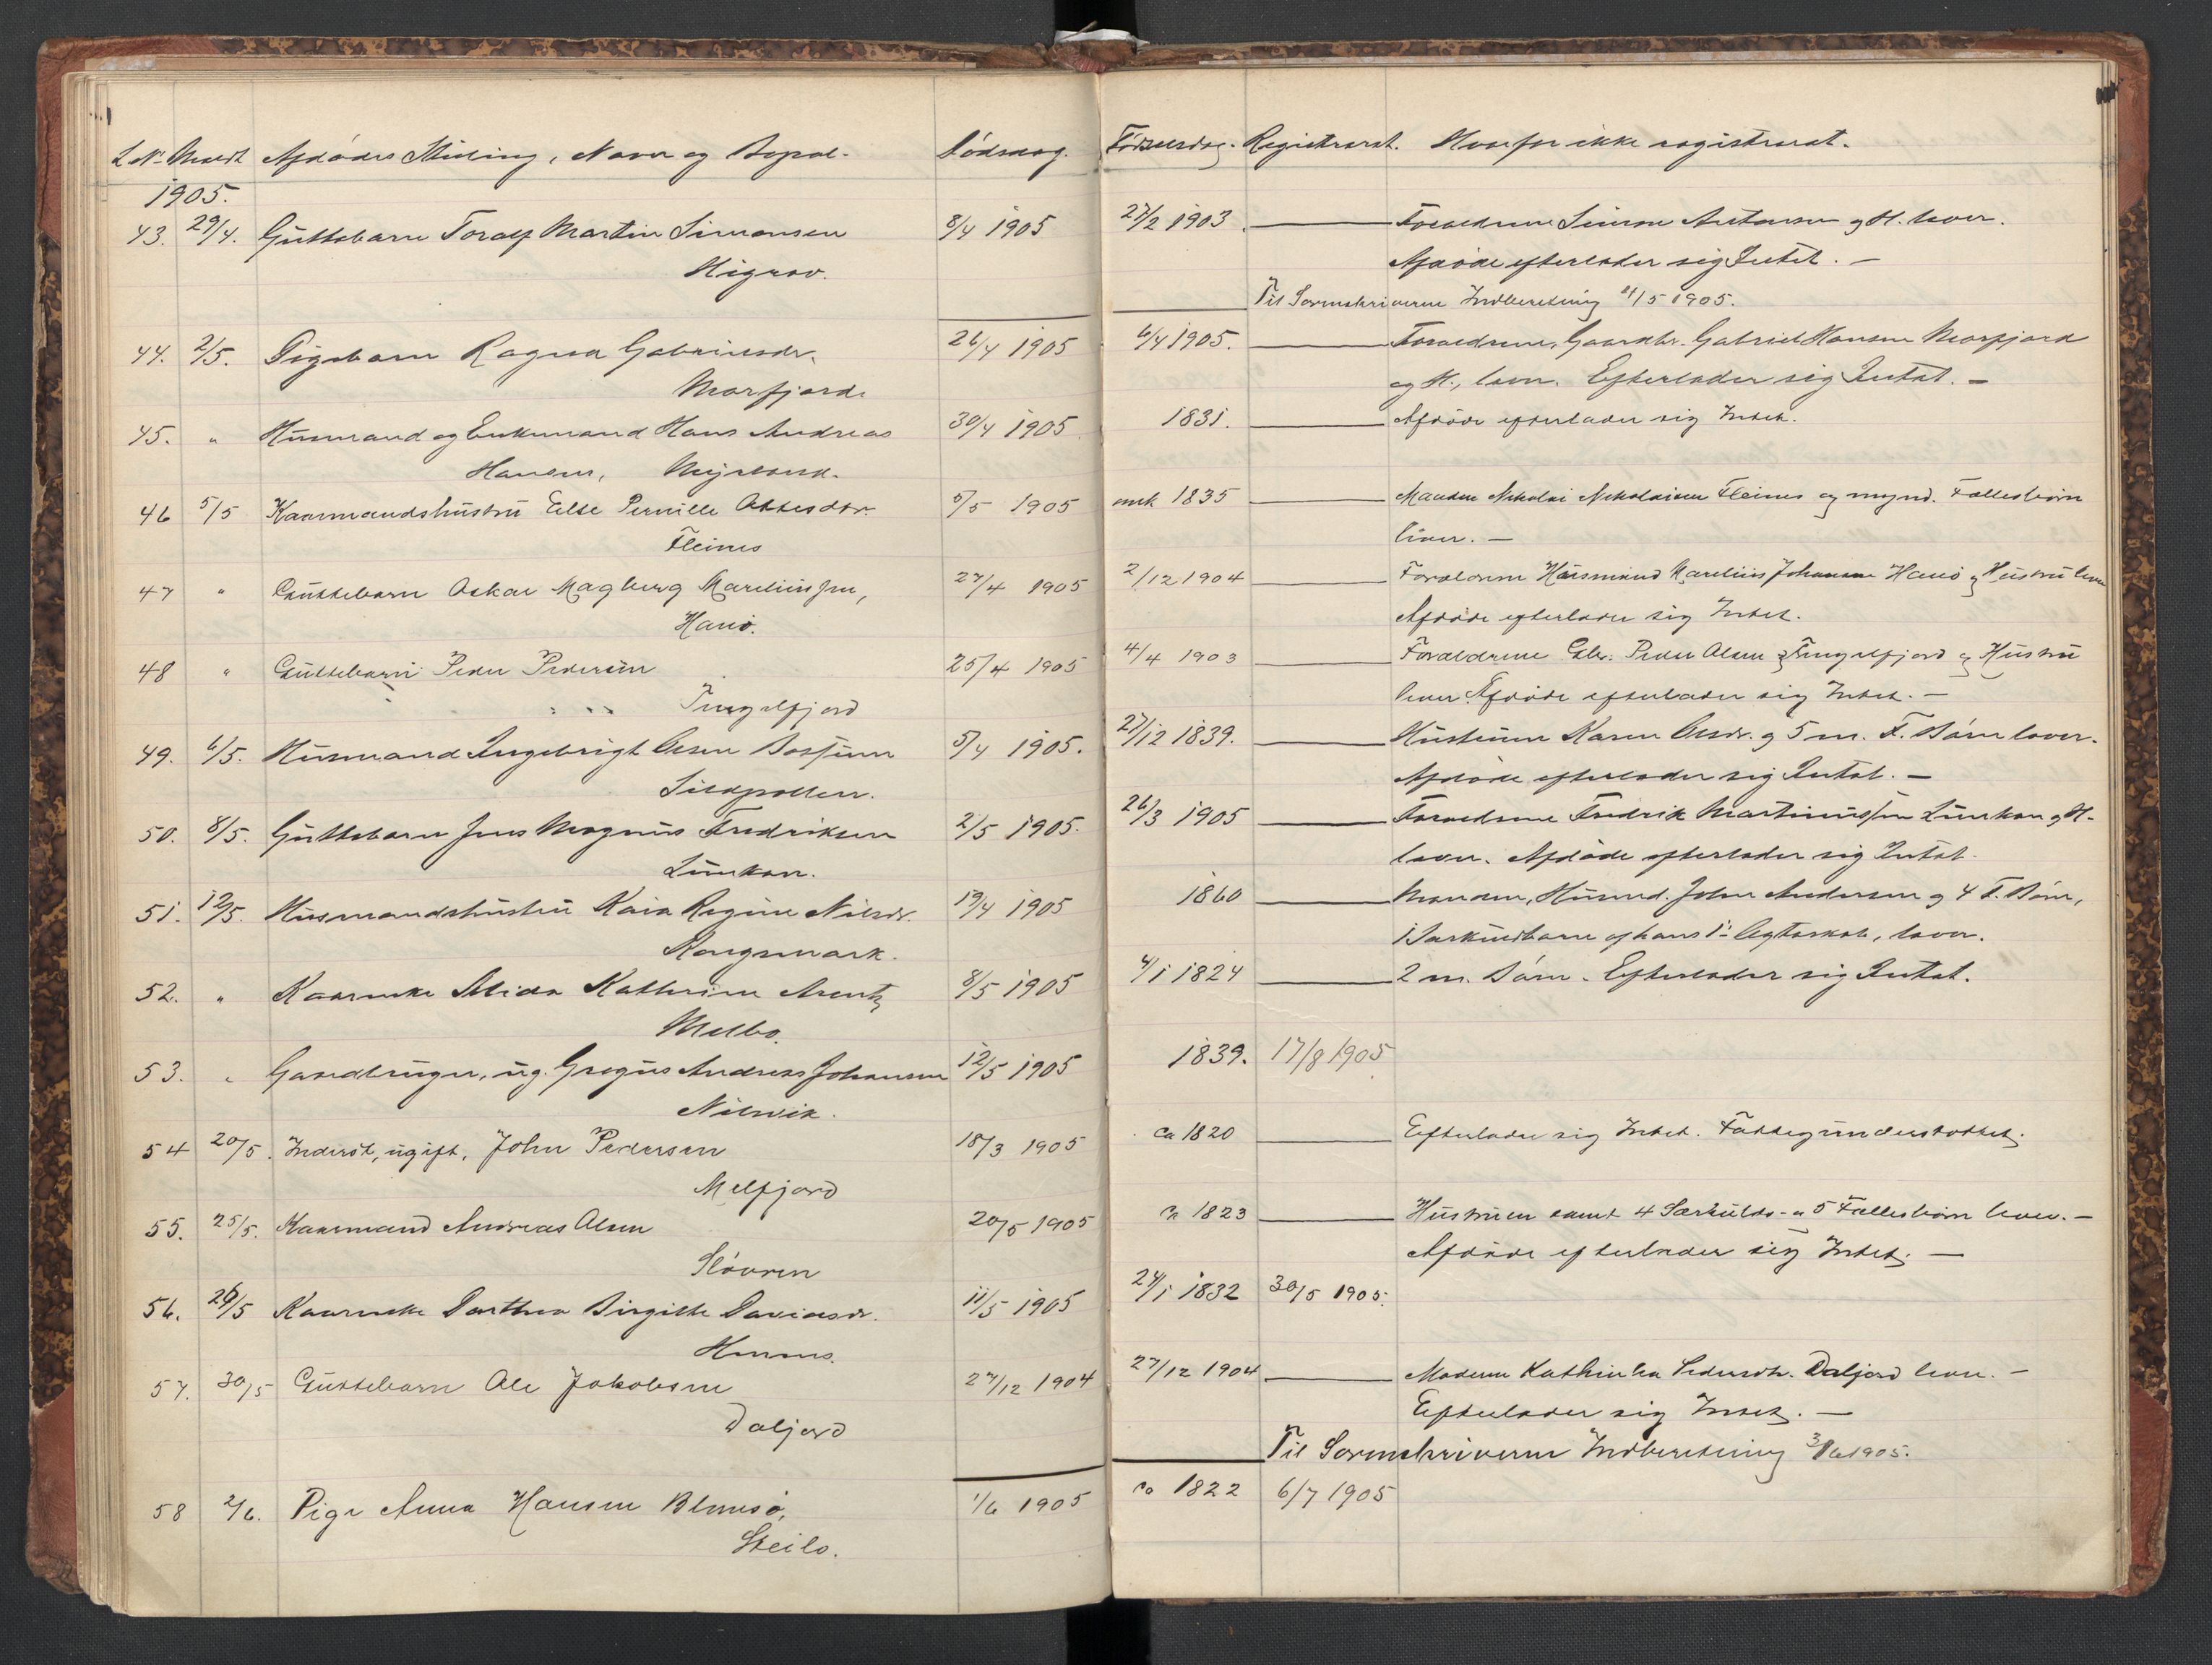 L. No Meldt Afdødes Stilling, Navn og Bopæl. Dødsdag. Fødselsdag. Registreret. Hvorfor ikke registreret.
1905.
43. 29/4. Guttebarn Toralf Martin Simonsen 8/4 1905 27/2 1903 Forældrene Simon Antonsen og H. lever.
Higrav. Afdøde efterlader sig Intet. —
Til Sorenskriveren Indberetning 11/5 1905.
44. 2/5. Pigebarn Ragna Gabrielsdr. 26/4 1905 6/4 1905. Forældrene, Gaardbr. Gabriel Hansen Morfjord
Morfjord. og H., lever. Efterlader sig Intet. —
45. " Husmand og Enkemand Hans Andreas 30/4 1905 1831. Afdøde efterlader sig Intet.
Hansen, Myrland.
46 5/5 Kaarmandshustru Else Pernille Ottesdtr. 5/5 1905 1835 Manden Nikolai Nikolaisen Fleines og mynd. Fællesbørn
Fleines lever. —
47 " Guttebarn Oskar Magberg Mareliussen, 27/4 1905 2/12 1904 Forældrene Husmand Marelius Johansen Hanø og Hustru lever
Hanø. Afdøde efterlader sig Intet.
48 " Guttebarn Peder Pedersen 25/4 1905 4/4 1903 Forældrene Gbr. Peder Olsen Tengelfjord og Hustru
Tengelfjord lever. Afdøde efterlader sig Intet. —
49. 6/5. Husmand Ingebrigt Olsen 5/4 1905. 27/12 1839. Hustruen Karen Olsdr. og 5 m. F. Børn lever.
Sildpollen. Afdøde efterlader sig Intet. —
50. 8/5. Guttebarn Jens Magnus Fredriksen 2/5 1905. 26/3 1905 Forældrene Fredrik Martinussen Liunkan og H.
Liunkan. lever. Afdøde efterlader sig Intet.
51. 12/5. Husmandshustru Kaia Regine Nilsdr. 19/4 1905 1860 Manden, Husmd. John Andersen og 4 F. Børn,
Kongsmark. 1 Særkuldbarn af hans 1ste Ægteskab, lever.
52. " Kaarenke Alida Kathrine Arentz 8/5 1905 4/1 1824 2 m. Børn. Efterlader sig Intet.
Melbo.
53. " Gaardbruger, ug. Gregus Andreas Johansen 12/5 1905 1839. 17/8 1905
Nilsvik.
54 20/5. Inderst, ugift, John Pedersen 18/3 1905 ca 1820 Efterlader sig Intet. Fattigunderstøttet.
Melfjord
55. 25/5. Kaarmand Andreas Olsen 20/5 1905 Ca 1823 Hustruen samt 4 Særkulds- og 5 Fællesbørn lever. —
Sløvren Afdøde efterlader sig Intet. —
56. 26/5 Kaarenke Dorthea Birgitte Davidsdr. 11/5 1905 24/1 1832 30/5 1905.
57. 30/5 Guttebarn Ole Jakobsen 27/12 1904 27/12 1904 Moderen Kathinka Pedersdtr. Daljord lever. —
Daljord Efterlader sig Intet. —
Til Sorenskriveren Indberetning 3/6 1905.
58 2/6. Pige Anna Hansen 1/6 1905 ca 1822 6/7 1905
Steilo.